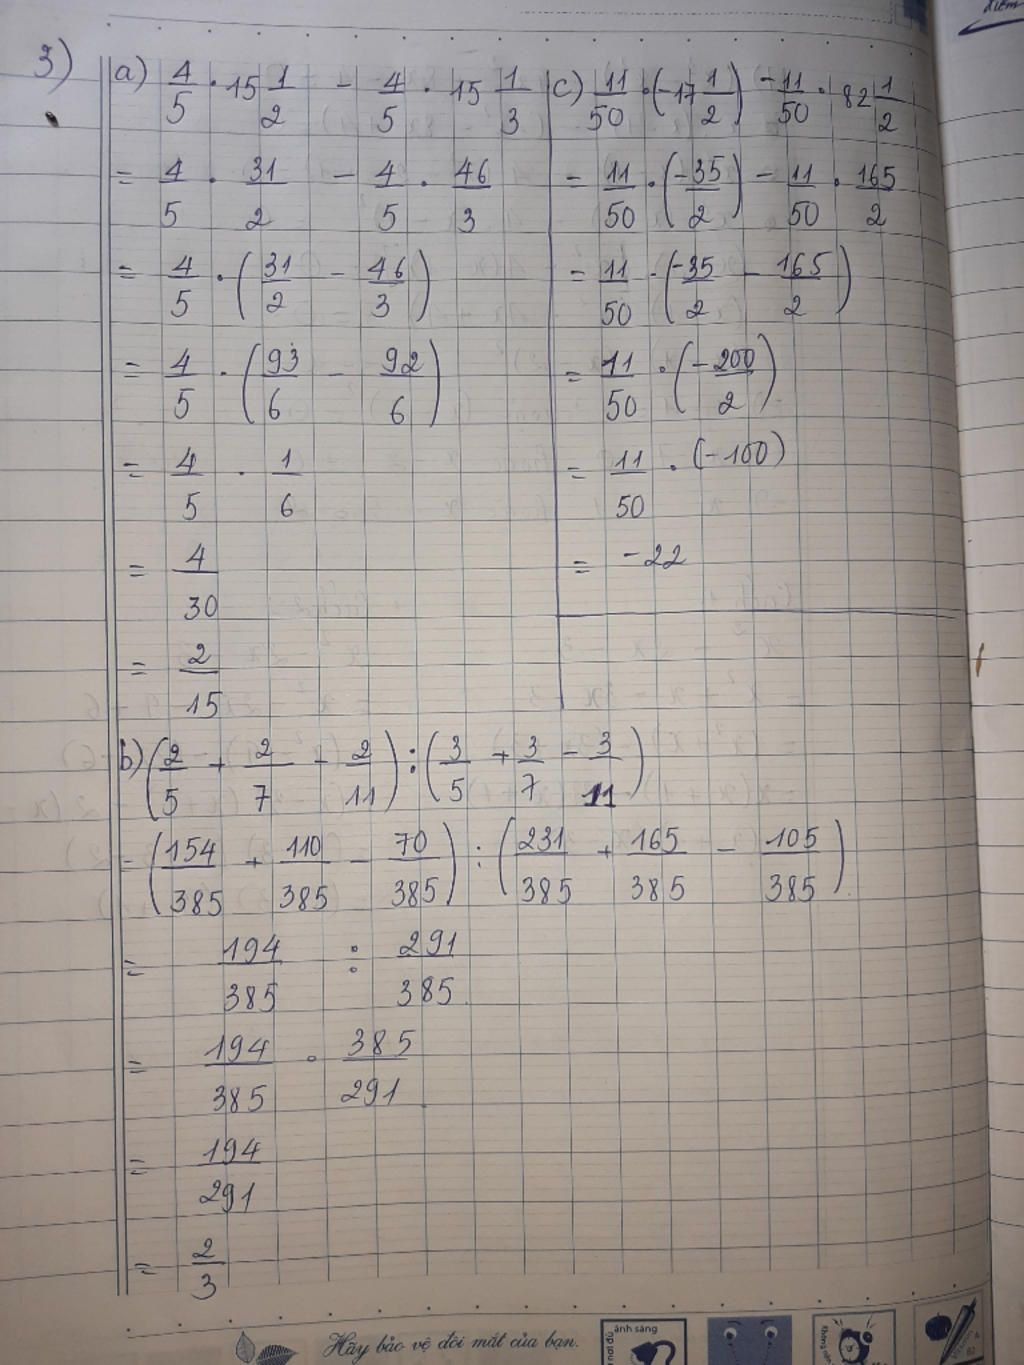 điểm
3)
a) 4/5 · 15 1/2 - 4/5 · 15 1/3
= 4/5 · 31/2 - 4/5 · 46/3
= 4/5 · (31/2 - 46/3)
= 4/5 · (93/6 - 92/6)
= 4/5 · 1/6
= 4/30
= 2/15
c) 11/50 · (-17 1/2) - 11/50 · 82 1/2
= 11/50 · (-35/2) - 11/50 · 165/2
= 11/50 · (-35/2 - 165/2)
= 11/50 · (-200/2)
= 11/50 · (-100)
= -22
b) (2/5 + 2/7 - 2/11) : (3/5 + 3/7 - 3/11)
= (154/385 + 110/385 - 70/385) : (231/385 + 165/385 - 105/385)
= 194/385 : 291/385
= 194/385 · 385/291
= 194/291
= 2/3
Hãy bảo vệ đôi mắt của bạn.
ánh sáng